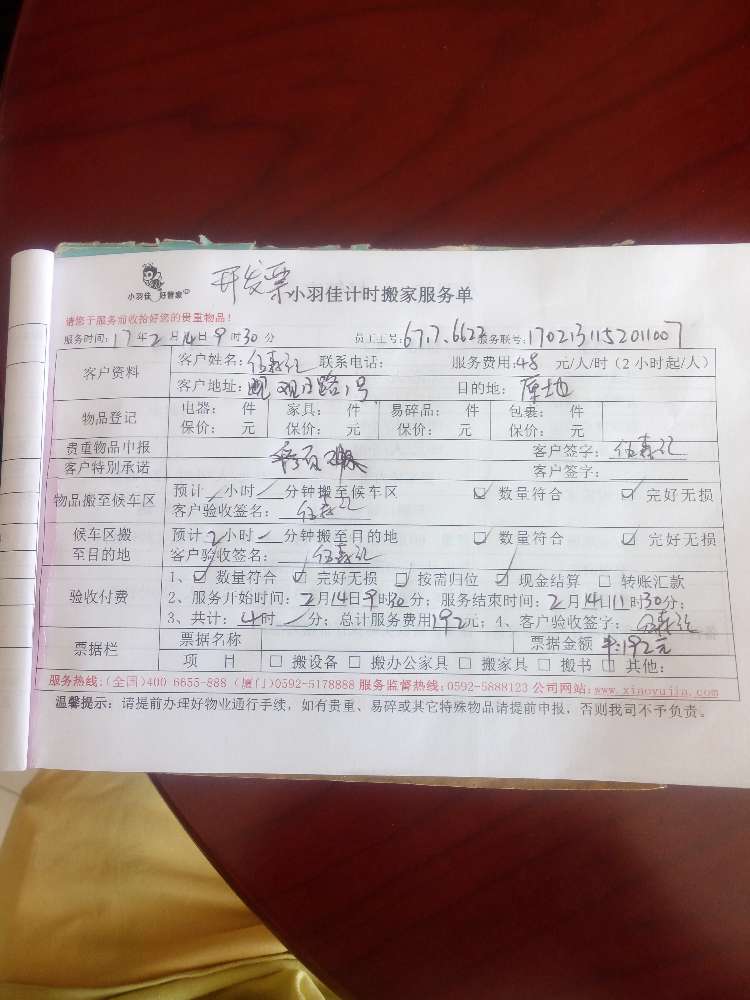 小羽佳 好管家
开发票
小羽佳计时搬家服务单
请您于服务前收拾好您的贵重物品！
服务时间：17年2月14日9时30分 员工工号：67.7.6622 服务联号：1702131152011007
客户资料 客户姓名： 联系电话： 服务费用：48 元/人/时（2小时起/人）
客户地址：观日路1号 目的地：原地
物品登记 电器： 件 家具： 件 易碎品： 件 包裹： 件
保价： 元 保价： 元 保价： 元 保价： 元
贵重物品申报 客户签字：
客户特别承诺 客户签字：
物品搬至候车区 预计 小时 分钟搬至候车区 ☑ 数量符合 ☑ 完好无损
客户验收签名：
候车区搬至目的地 预计2小时 分钟搬至目的地 ☑ 数量符合 ☑ 完好无损
客户验收签名：
验收付费 1、☑ 数量符合 ☑ 完好无损 ☑ 按需归位 ☑ 现金结算 □ 转账汇款
2、服务开始时间：2月14日9时30分；服务结束时间：2月14日11时30分；
3、共计：4时 分；总计服务费用192元；4、客户验收签字：
票据栏 票据名称 票据金额 192元
项 目 □ 搬设备 □ 搬办公家具 □ 搬家具 □ 搬书 □ 其他：
服务热线：（全国）400 6655-888（厦门）0592-5178888 服务监督热线：0592-5888123 公司网站：www.xiaoyujia.com
温馨提示：请提前办理好物业通行手续，如有贵重、易碎或其它特殊物品请提前申报，否则我司不予负责。